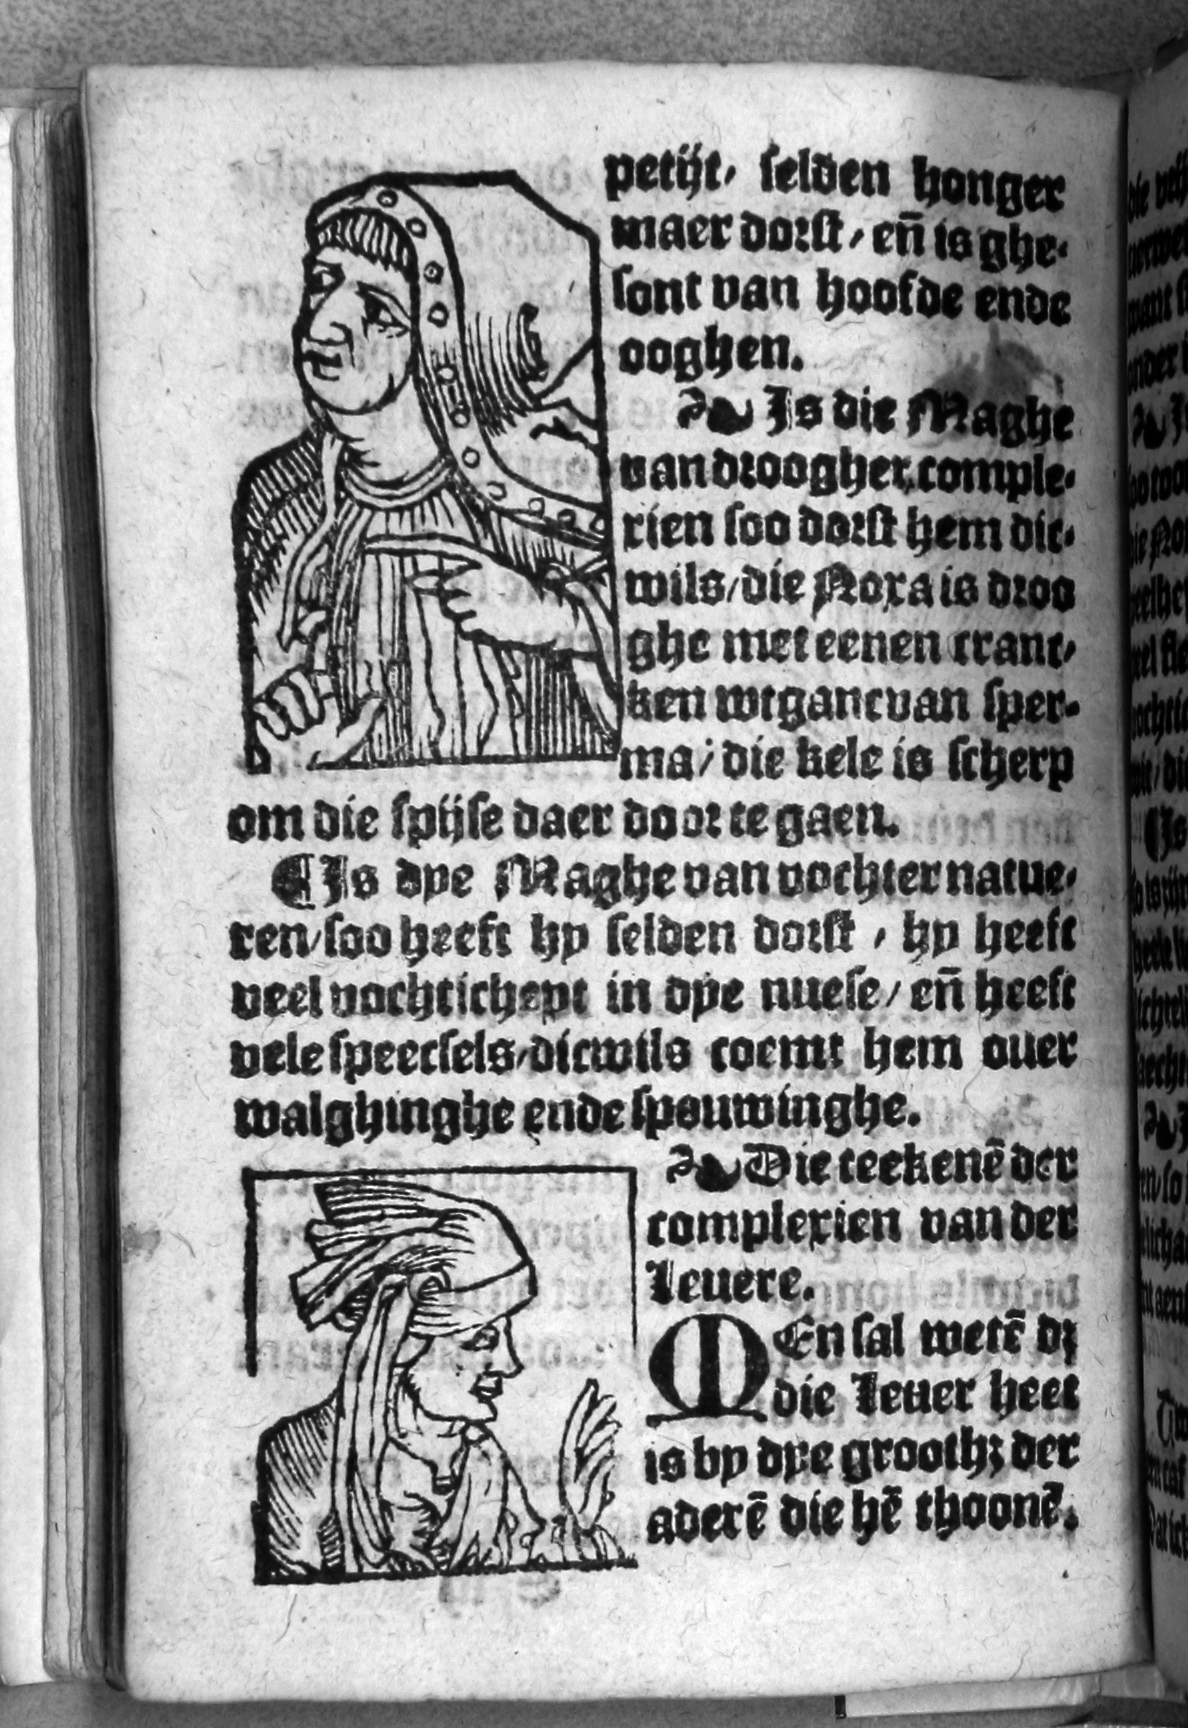 petijt/ selden honger
maer dorst/ eñ is ghe-
sont van hoofde ende
ooghen.
❧ Is die Maghe
van droogher comple-
xien soo dorst hem dic-
wils/die Noxa is droo
ghe met eenen cranc-
ken wtganc van sper-
ma/ die kele is scherp
om die spijse daer door te gaen.
¶Is dye Maghe van vochter natue-
ren/soo heeft hy selden dorst / hy heeft
veel vochticheyt in dye nuese/ eñ heeft
vele speecsels/dicwils coemt hem ouer
walghinghe ende spouwinghe.
❧Die teekenē der
complexien van der
Leuere.
MEn sal wetē dz
die Leuer heet
is by dye grooth; der
aderē die hē thoonē.